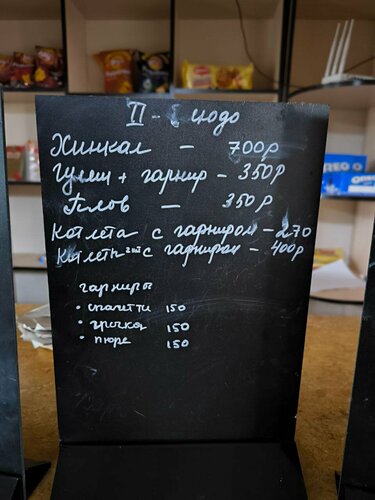 II - блюдо
Хинкал - 700р
Гуляш + гарнир - 350р
Плов - 350р
Котлета с гарниром - 270
Котлеты 2шт с гарниром - 400р
гарниры
• спагетти 150
• гречка 150
• пюре 150
OREO